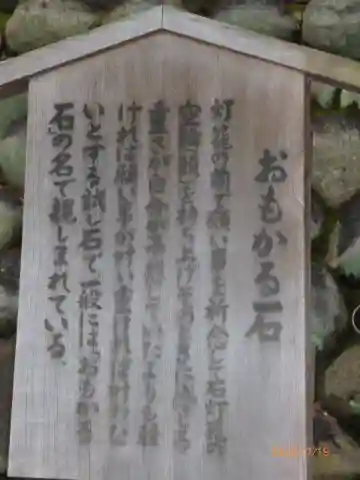 おもかる石
灯篭の前で願い事を祈念し石灯篭の
空輪(頭)を持ち上げたときに感じる
重さが、自分が予想していたよりも軽
ければ願い事が叶い、重ければ叶わな
いとする試し石で一般には「おもかる
石」の名で親しまれている。